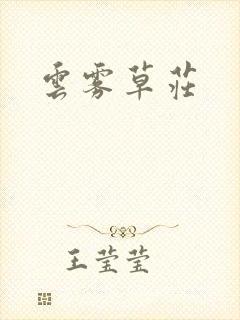 雲雾草莊
王莹莹